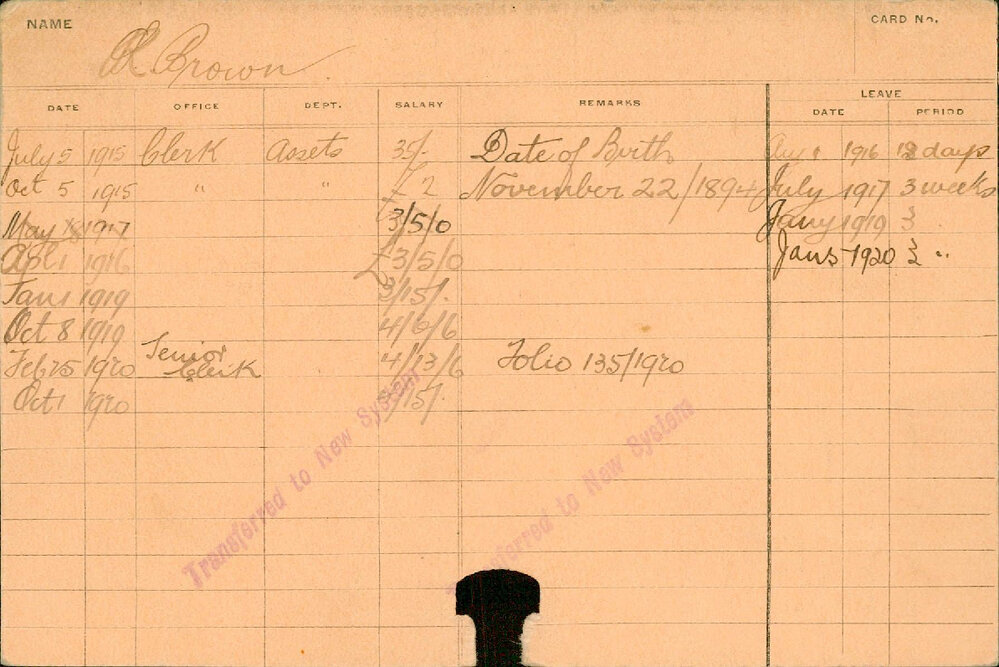 NAME CARD No.
Brown
DATE OFFICE DEPT. SALARY REMARKS LEAVE
DATE PERIOD
July 5 1915 Clerk Assets 35/- Date of Birth 1916 days
Oct 5 1915 " " £2 November 22/1894 July 1917 3 weeks
May 1917 3/5/0 Jany 1919 3
Apl 1 1916 £3/5/0 Jan 5 1920 3 "
Jan 1 1919 3/15/-
Oct 8 1919 4/6/6
Feb 25 1920 Senior Clerk 4/13/6 Folio 135/1920
Oct 1 1920 /15/-
Transferred to New System
Transferred to New System